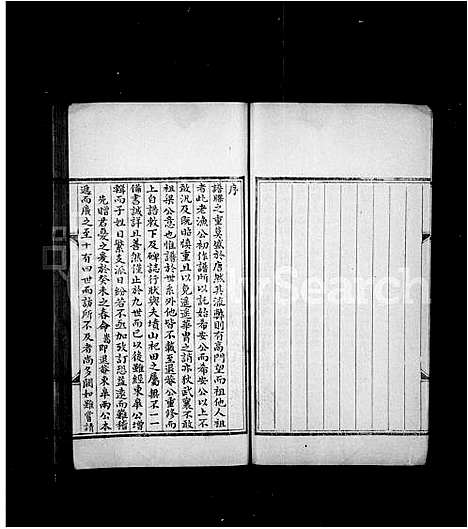 序
譜牒之重莫盛於唐然其流弊則有高門望而祖他人祖
者此老漁公初作譜所以託始希安公而希安公以上不
敢汎及既昭慎重且以免遙遙華胄之誚亦狄武襄不敢
祖梁公意也惟譜於世系外他皆不載至退菴公重修而
上自誥敕下及碑誌行狀與夫墳山祀田之屬無不一一
備書誠詳且善然僅止於九世而已以後雖經東皋公增
輯而子姓日繁支派日紛若不亟加改訂恐益遠而難稽
先贈君憂之爰於癸未之春命嵩即退菴東皋兩公本
遞而廣之至十有四世而訪所不及者尚多闕如雖嘗請